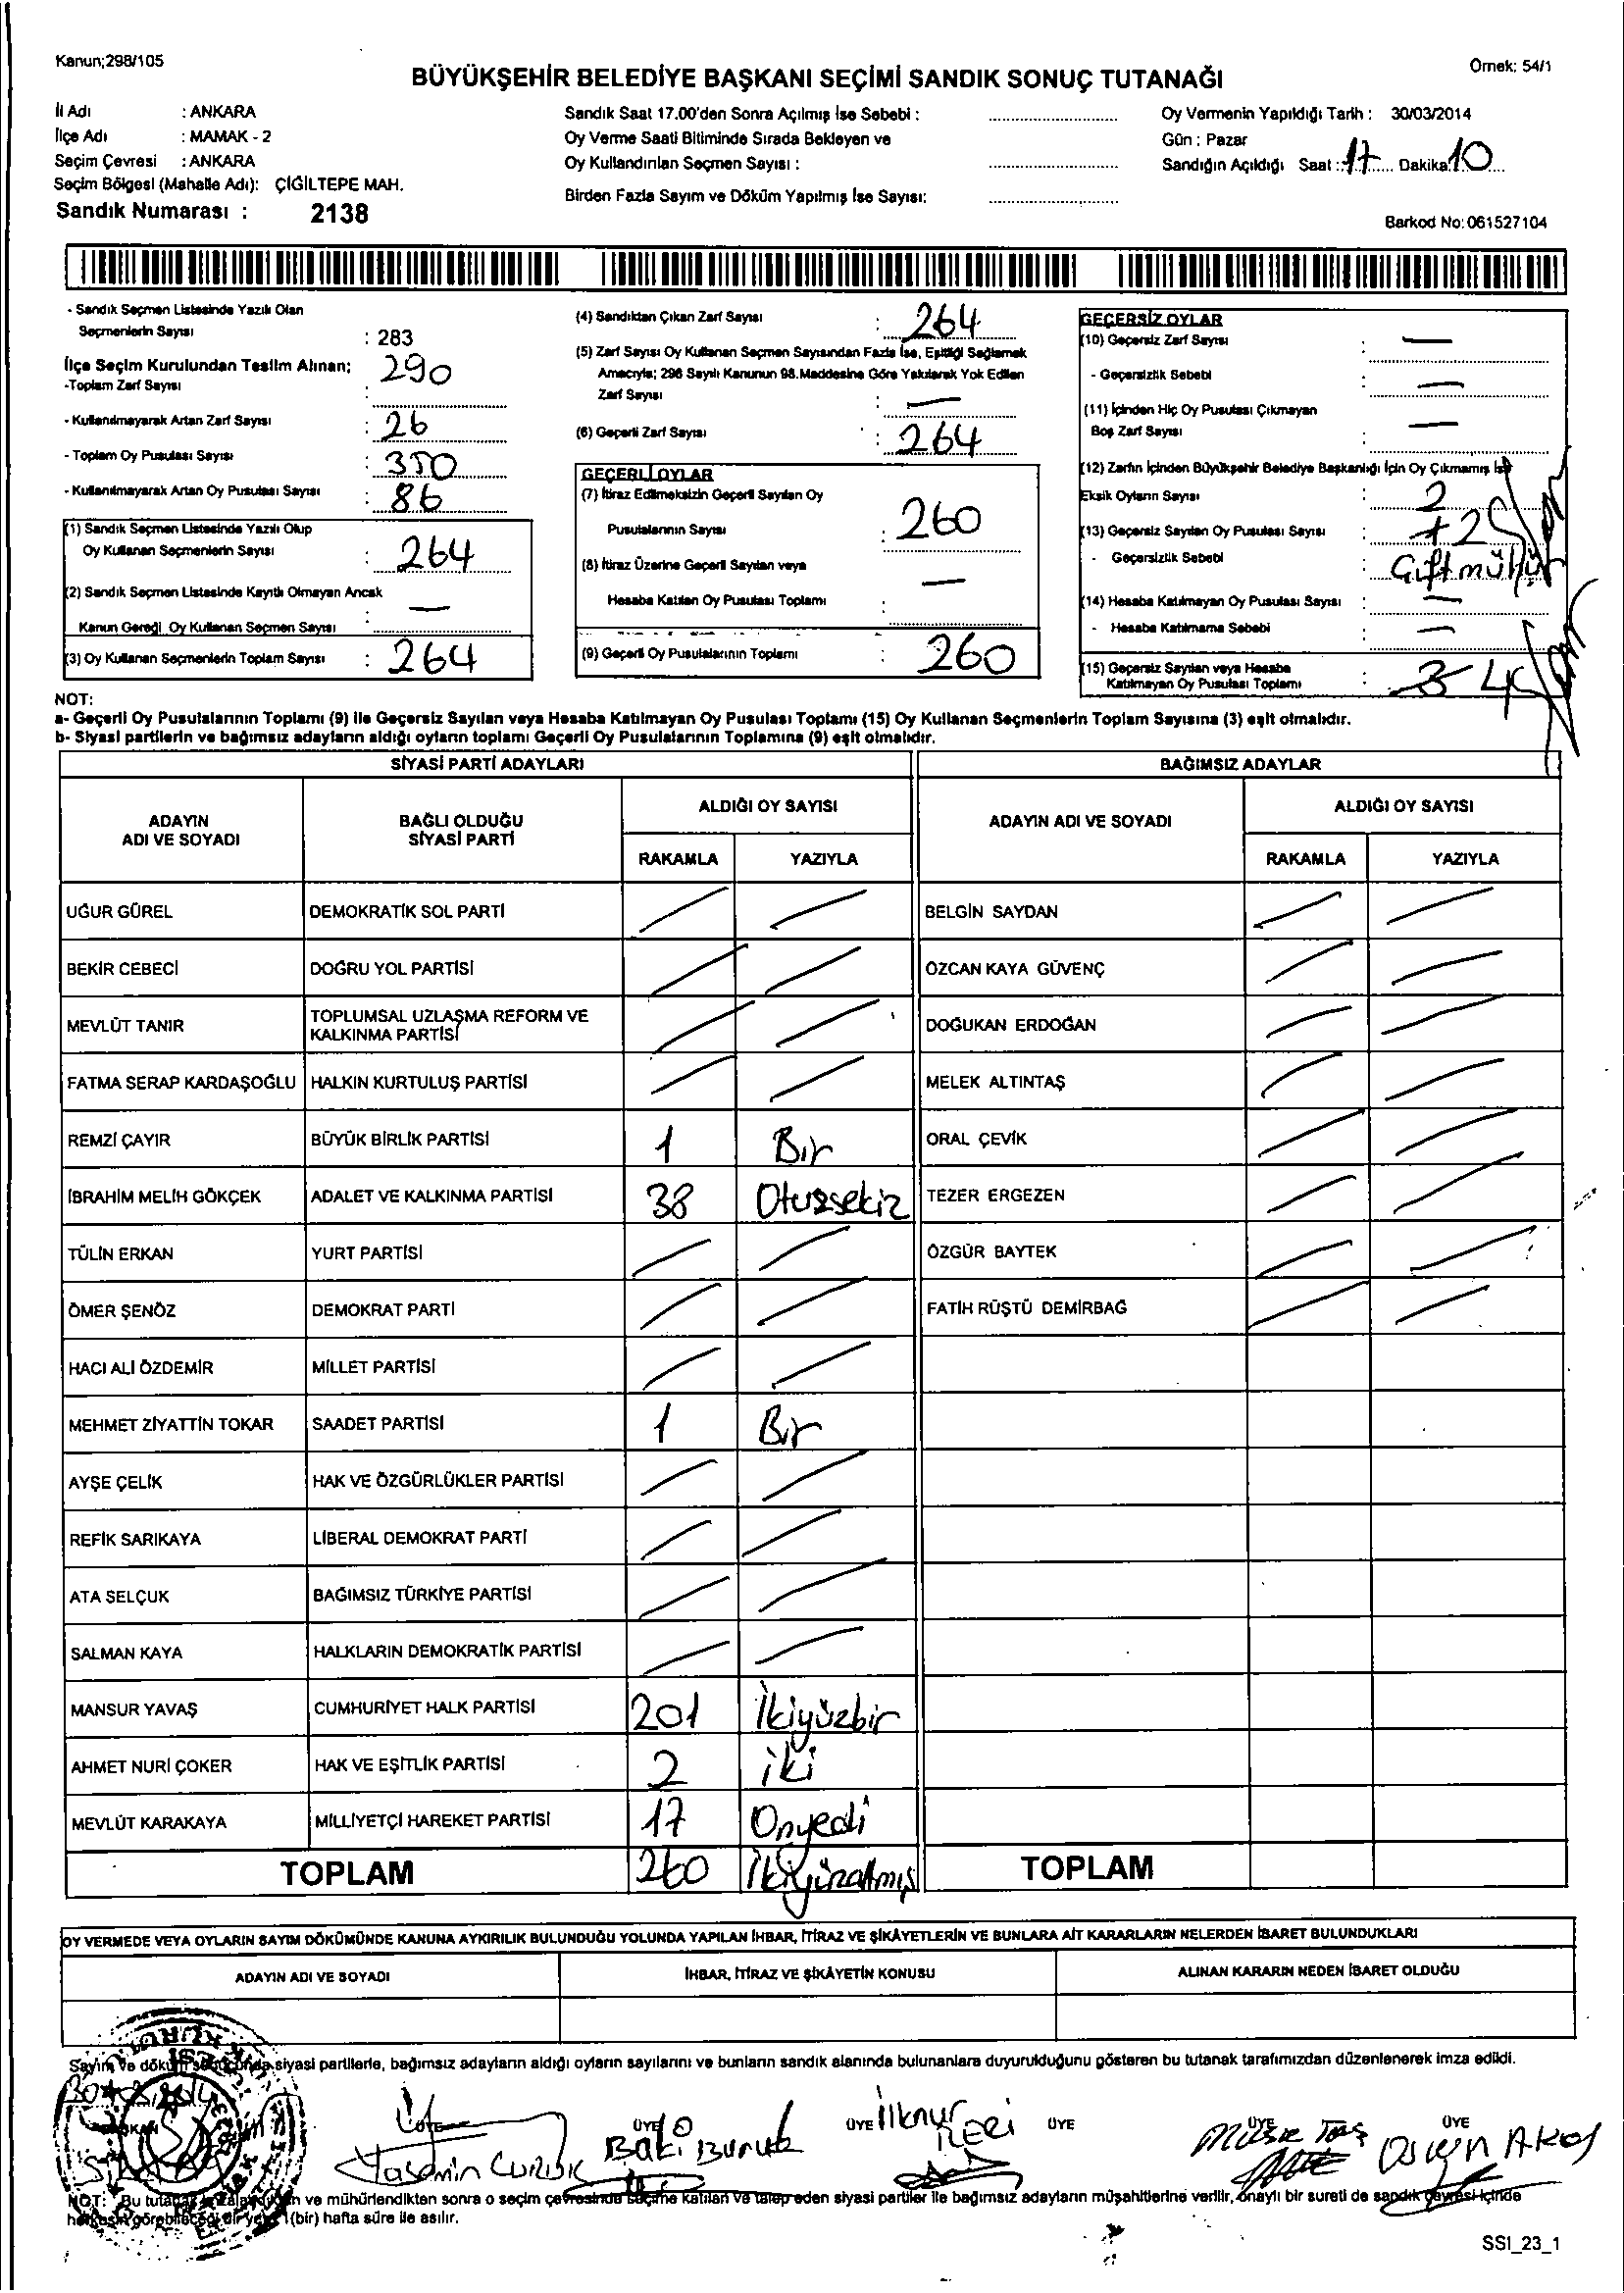 Kanun;298/105
Örnek: 54/1
BÜYÜKŞEHİR BELEDİYE BAŞKANI SEÇİMİ SANDIK SONUÇ TUTANAĞI
İl Adı : ANKARA
İlçe Adı : MAMAK - 2
Seçim Çevresi : ANKARA
Seçim Bölgesi (Mahalle Adı): ÇİĞİLTEPE MAH.
Sandık Numarası : 2138
Sandık Saat 17.00'den Sonra Açılmış İse Sebebi :
Oy Verme Saati Bitiminde Sırada Bekleyen ve
Oy Kullandırılan Seçmen Sayısı :
Birden Fazla Sayım ve Döküm Yapılmış İse Sayısı:
Oy Vermenin Yapıldığı Tarih : 30/03/2014
Gün : Pazar
Sandığın Açıldığı Saat : 17 Dakika 10
Barkod No: 061527104
- Sandık Seçmen Listesinde Yazılı Olan
Seçmenlerin Sayısı : 283
İlçe Seçim Kurulundan Teslim Alınan;
-Toplam Zarf Sayısı : 290
- Kullanılmayarak Artan Zarf Sayısı : 26
- Toplam Oy Pusulası Sayısı : 350
- Kullanılmayarak Artan Oy Pusulası Sayısı : 86
(1) Sandık Seçmen Listesinde Yazılı Olup
Oy Kullanan Seçmenlerin Sayısı : 264
(2) Sandık Seçmen Listesinde Kayıtlı Olmayan Ancak
Kanun Gereği Oy Kullanan Seçmen Sayısı : —
(3) Oy Kullanan Seçmenlerin Toplam Sayısı : 264
(4) Sandıktan Çıkan Zarf Sayısı : 264
(5) Zarf Sayısı Oy Kullanan Seçmen Sayısından Fazla İse, Eşitliği Sağlamak
Amacıyla; 298 Sayılı Kanunun 98.Maddesine Göre Yakılarak Yok Edilen
Zarf Sayısı : —
(6) Geçerli Zarf Sayısı : 264
GEÇERLİ OYLAR
(7) İtiraz Edilmeksizin Geçerli Sayılan Oy
Pusulalarının Sayısı : 260
(8) İtiraz Üzerine Geçerli Sayılan veya
Hesaba Katılan Oy Pusulası Toplamı : —
(9) Geçerli Oy Pusulalarının Toplamı : 260
GEÇERSİZ OYLAR
(10) Geçersiz Zarf Sayısı : —
- Geçersizlik Sebebi : —
(11) İçinden Hiç Oy Pusulası Çıkmayan
Boş Zarf Sayısı : —
(12) Zarfın İçinden Büyükşehir Belediye Başkanlığı İçin Oy Çıkmamış İse
Eksik Oyların Sayısı : 2
(13) Geçersiz Sayılan Oy Pusulası Sayısı : 2
- Geçersizlik Sebebi : Çift mühür
(14) Hesaba Katılmayan Oy Pusulası Sayısı : —
- Hesaba Katılmama Sebebi : —
(15) Geçersiz Sayılan veya Hesaba
Katılmayan Oy Pusulası Toplamı : 3 4
NOT:
a- Geçerli Oy Pusulalarının Toplamı (9) ile Geçersiz Sayılan veya Hesaba Katılmayan Oy Pusulası Toplamı (15) Oy Kullanan Seçmenlerin Toplam Sayısına (3) eşit olmalıdır.
b- Siyasi partilerin ve bağımsız adayların aldığı oyların toplamı Geçerli Oy Pusulalarının Toplamına (9) eşit olmalıdır.
SİYASİ PARTİ ADAYLARI BAĞIMSIZ ADAYLAR
ADAYIN ADI VE SOYADI BAĞLI OLDUĞU SİYASİ PARTİ ALDIĞI OY SAYISI ADAYIN ADI VE SOYADI ALDIĞI OY SAYISI
RAKAMLA YAZIYLA RAKAMLA YAZIYLA
UĞUR GÜREL DEMOKRATİK SOL PARTİ BELGİN SAYDAN
BEKİR CEBECİ DOĞRU YOL PARTİSİ ÖZCAN KAYA GÜVENÇ
MEVLÜT TANIR TOPLUMSAL UZLAŞMA REFORM VE KALKINMA PARTİSİ DOĞUKAN ERDOĞAN
FATMA SERAP KARDAŞOĞLU HALKIN KURTULUŞ PARTİSİ MELEK ALTINTAŞ
REMZİ ÇAYIR BÜYÜK BİRLİK PARTİSİ 1 Bir ORAL ÇEVİK
İBRAHİM MELİH GÖKÇEK ADALET VE KALKINMA PARTİSİ 38 Otuzsekiz TEZER ERGEZEN
TÜLİN ERKAN YURT PARTİSİ ÖZGÜR BAYTEK
ÖMER ŞENÖZ DEMOKRAT PARTİ FATİH RÜŞTÜ DEMİRBAĞ
HACI ALİ ÖZDEMİR MİLLET PARTİSİ
MEHMET ZİYATTİN TOKAR SAADET PARTİSİ 1 Bir
AYŞE ÇELİK HAK VE ÖZGÜRLÜKLER PARTİSİ
REFİK SARIKAYA LİBERAL DEMOKRAT PARTİ
ATA SELÇUK BAĞIMSIZ TÜRKİYE PARTİSİ
SALMAN KAYA HALKLARIN DEMOKRATİK PARTİSİ
MANSUR YAVAŞ CUMHURİYET HALK PARTİSİ 201 İkiyüzbir
AHMET NURİ ÇOKER HAK VE EŞİTLİK PARTİSİ 2 iki
MEVLÜT KARAKAYA MİLLİYETÇİ HAREKET PARTİSİ 17 Onyedi
TOPLAM 260 İkiyüzatmış TOPLAM
OY VERMEDE VEYA OYLARIN SAYIM DÖKÜMÜNDE KANUNA AYKIRILIK BULUNDUĞU YOLUNDA YAPILAN İHBAR, İTİRAZ VE ŞİKÂYETLERİN VE BUNLARA AİT KARARLARIN NELERDEN İBARET BULUNDUKLARI
ADAYIN ADI VE SOYADI İHBAR, İTİRAZ VE ŞİKÂYETİN KONUSU ALINAN KARARIN NEDEN İBARET OLDUĞU
Sayım ve döküm siyasi partilerle, bağımsız adayların aldığı oyların sayılarını ve bunların sandık alanında bulunanlara duyurulduğunu gösteren bu tutanak tarafımızdan düzenlenerek imza edildi.
ÜYE ÜYE ÜYE ÜYE ÜYE
Yasemin Baki İlknur
NOT: Bu ve mühürlendikten sonra o seçim çevresinde seçime katılan ve talep eden siyasi partiler ile bağımsız adayların müşahitlerine verilir, onaylı bir sureti de sandık çevresi içinde
(bir) hafta süre ile asılır.
SSI_23_1